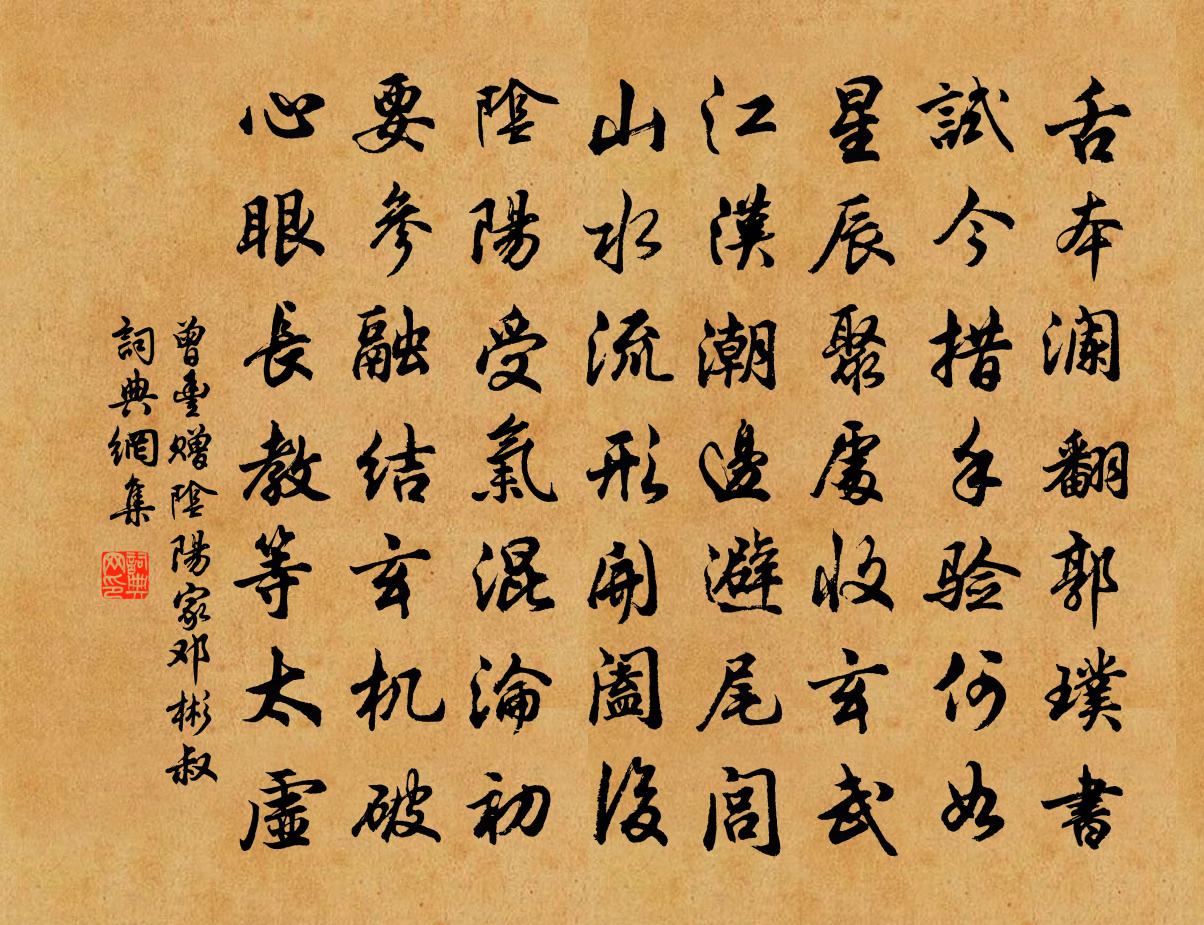 舌本澜翻郭璞書
試今措手验何如
星辰聚處收玄武
江漢潮邊避尾閭
山水流形開闔後
陰陽受氣混淪初
要參融结玄机破
心眼長教等太虛
曾豊赠陰陽家邓彬叔
詞典網集
詞典网印